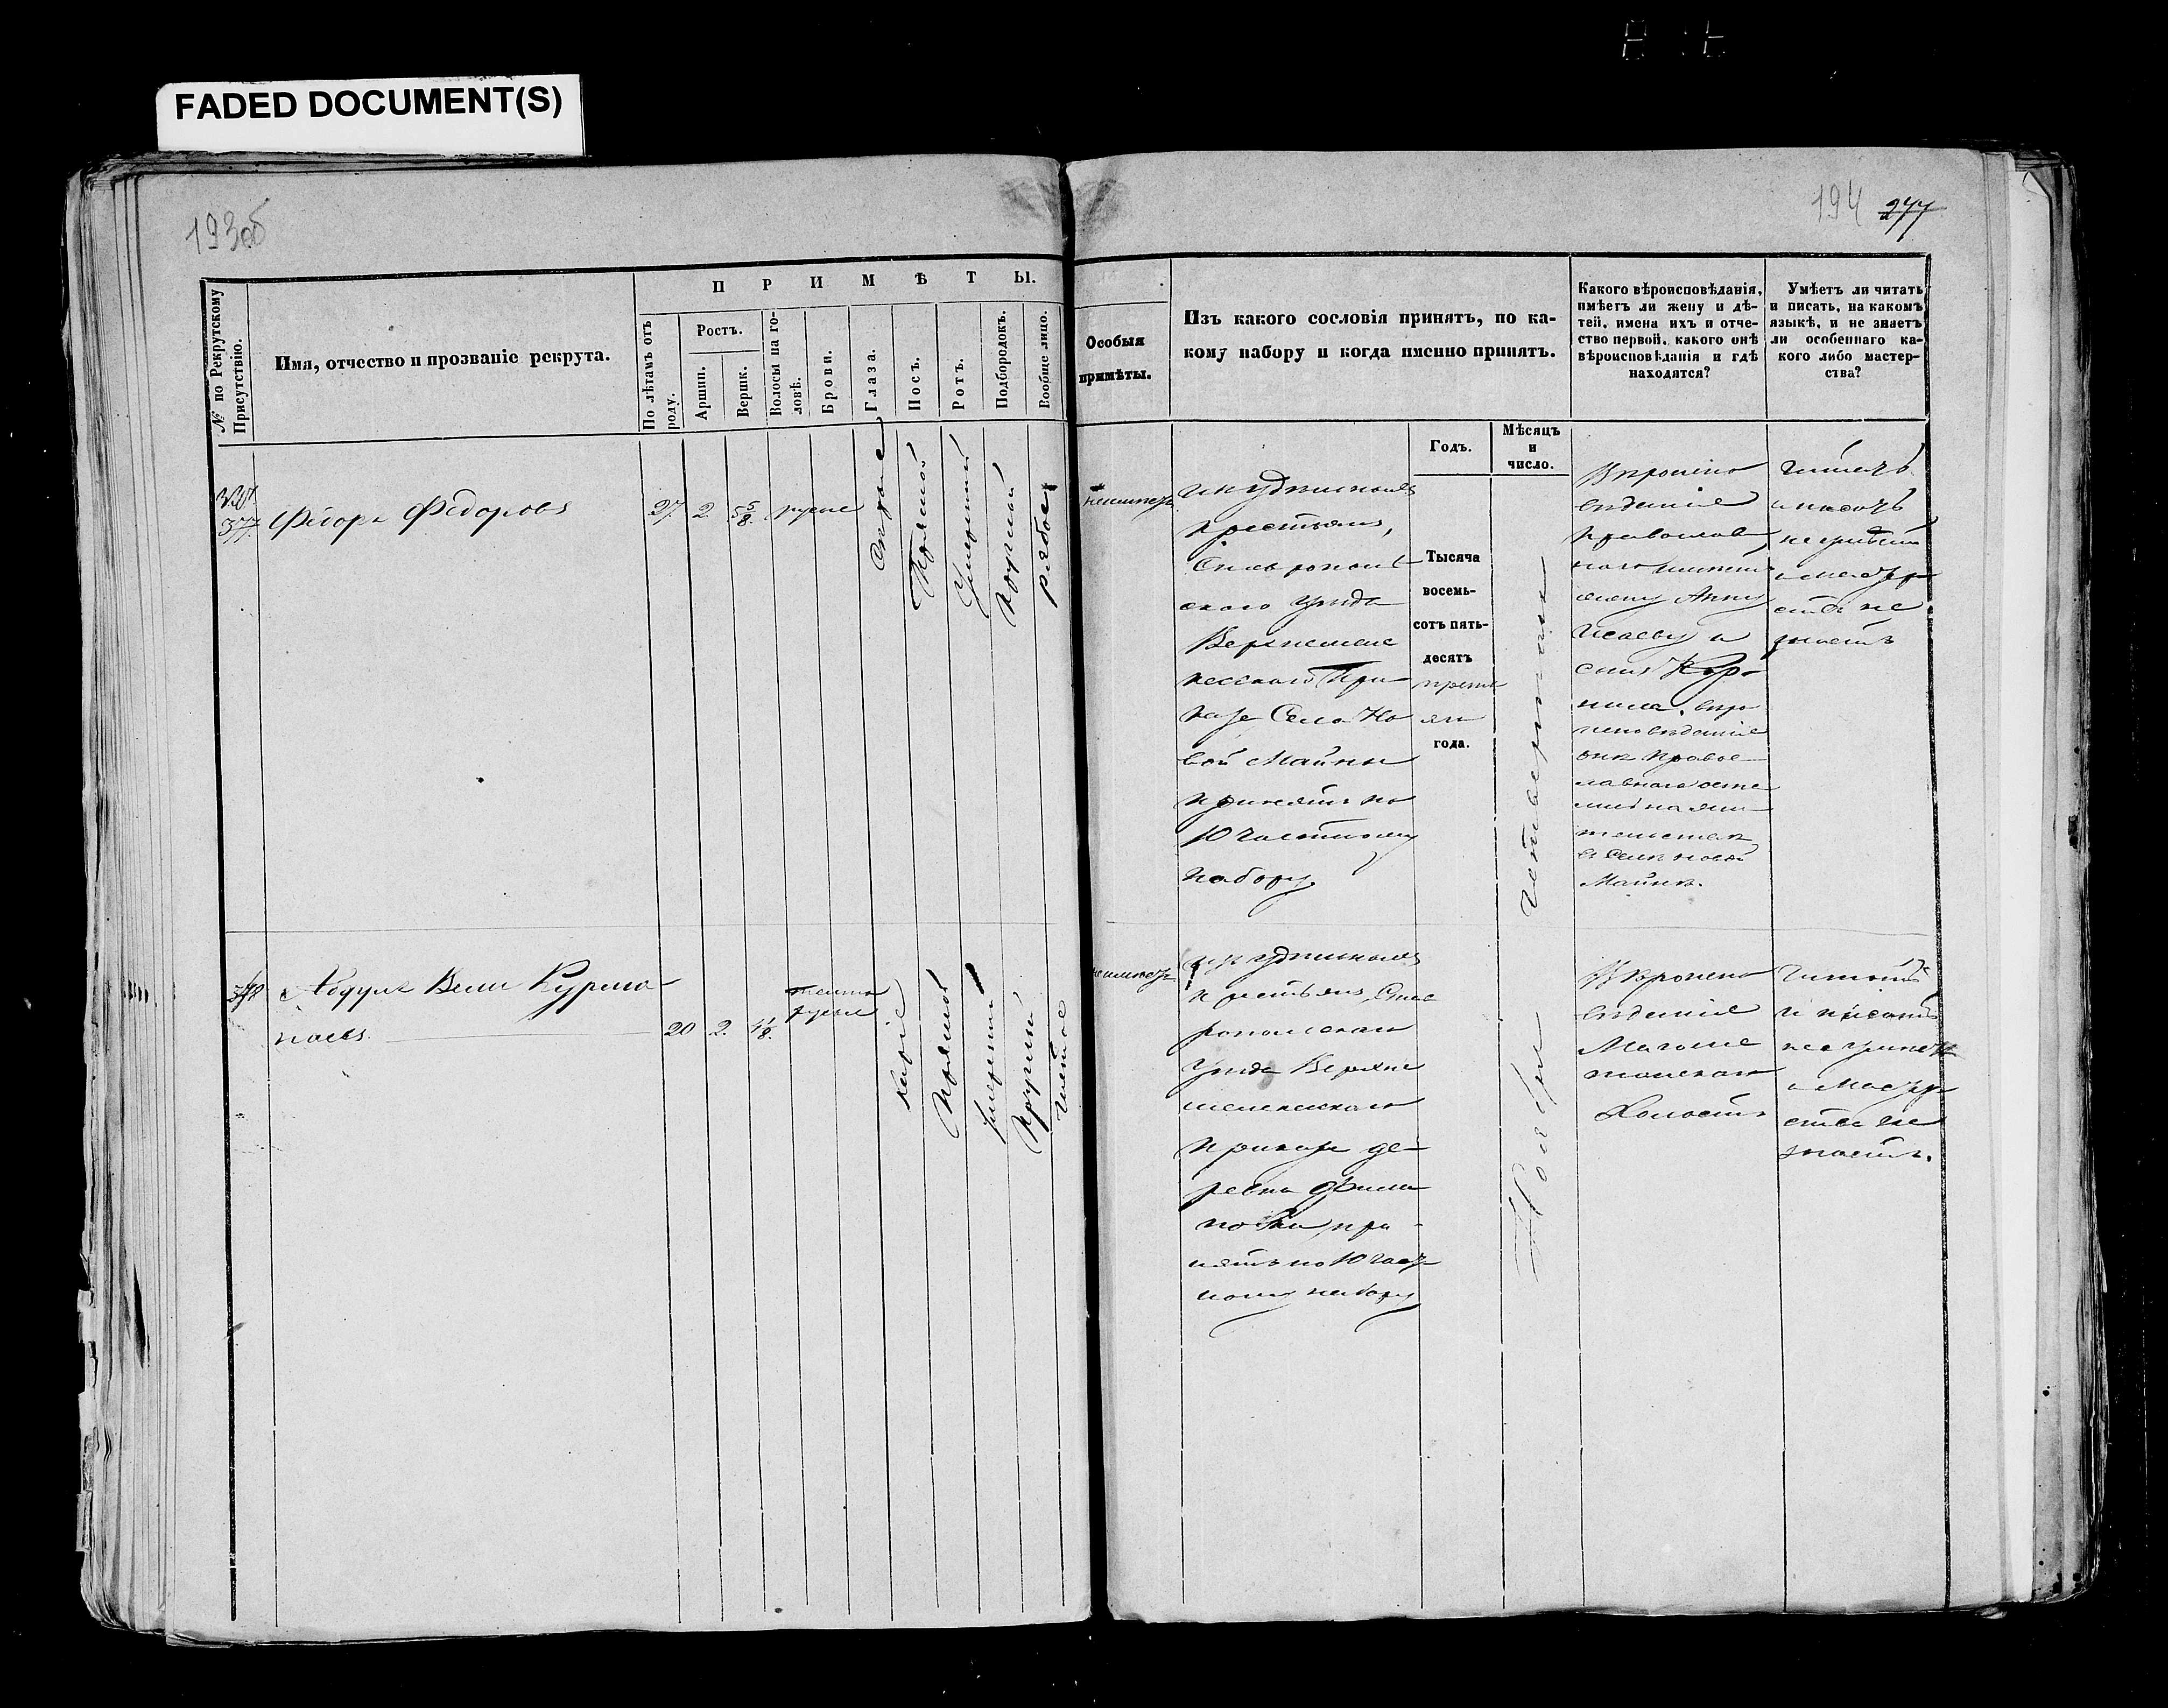 FADED DOCUMENT(S)
193об
194 277
№ по Рекрутскому Присутствію.
Имя, отчество и прозваніе рекрута.
ПРИМѢТЫ.
По лѣтамъ отъ роду.
Ростъ.
Аршин.
Вершк.
Волосы на головѣ.
Брови.
Глаза.
Носъ.
Ротъ.
Подбородокъ.
Вообще лицо.
Особыя
примѣты.
Изъ какого сословія принятъ, по ка-
кому набору и когда именно принятъ.
Годъ.
Мѣсяцъ
и
число.
Какого вѣроисповѣданія,
имѣетъ ли жену и дѣ-
тей, имена ихъ и отче-
ство первой, какого онѣ
вѣроисповѣданія и гдѣ
находятся?
Умѣетъ ли читать
и писать, на какомъ
языкѣ, и не знаетъ
ли особеннаго ка-
кого либо мастер-
ства?
377
Федоръ Федоровъ
27. 2. 5 5/8. русые
Прямой
Умеренный
круглой
рябое
неимеетъ
изъ удѣльныхъ
крестьянъ,
Ставрополь
скаго уѣзда
При
казе Села Но
вой Майны
принятъ по
10 частному
набору.
Тысяча
восемь-
сотъ пять-
десятъ
третья
яго
года.
Ноября четвертаго
Вѣроиспо
ведания
православ
наго имеетъ
жену Анну
Исаеву и
сына Кор-
нила, вѣро
исповеданія
они правос
лавнаго
жи
тельствѣ
въ Селѣ Новой
Майнѣ.
Читать
и писать
не умѣетъ
и мастер
ства не
знаетъ
378
Абдулъ Вели Курма
наевъ.
20 2. 4 1/8.
темно
русые
Каріе
Прямой
умеренный
Круглый
чистое
неимеетъ
изъ удѣльныхъ
крестьянъ Став
ропольскаго
Уѣзда Верхне
приказа де-
ревни Филип
повки при-
нятъ по 10 част
ному набору
Вѣроиспо
веданіе
Магоме
танскаго
Холостъ
Читать
и писать
не умеетъ
и мастер
ства не
знаетъ.